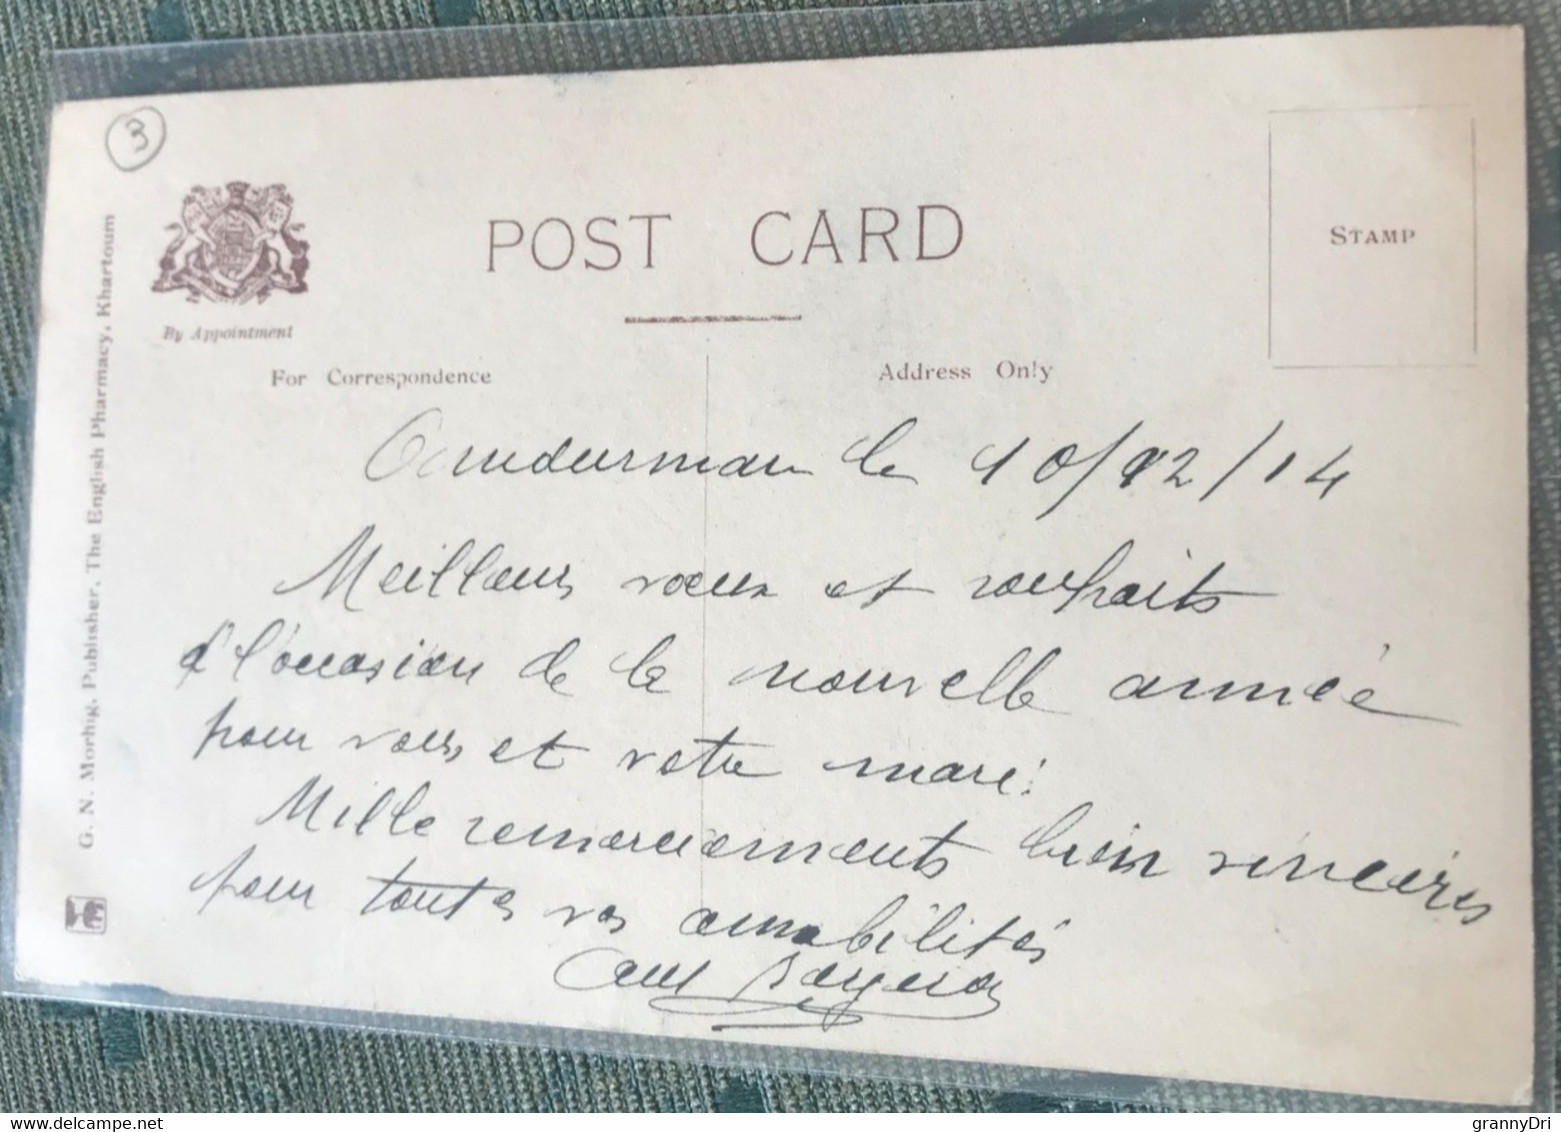 3
By Appointment
POST CARD
STAMP
For Correspondence
Address Only
G. N. Morhig, Publisher, The English Pharmacy, Khartoum
Omdurman le 10/12/14
Meilleurs voeux et souhaits
à l'occasion de la nouvelle année
pour vous et votre mari
Mille remerciements bien sincères
pour toutes vos amabilités
grannyDri